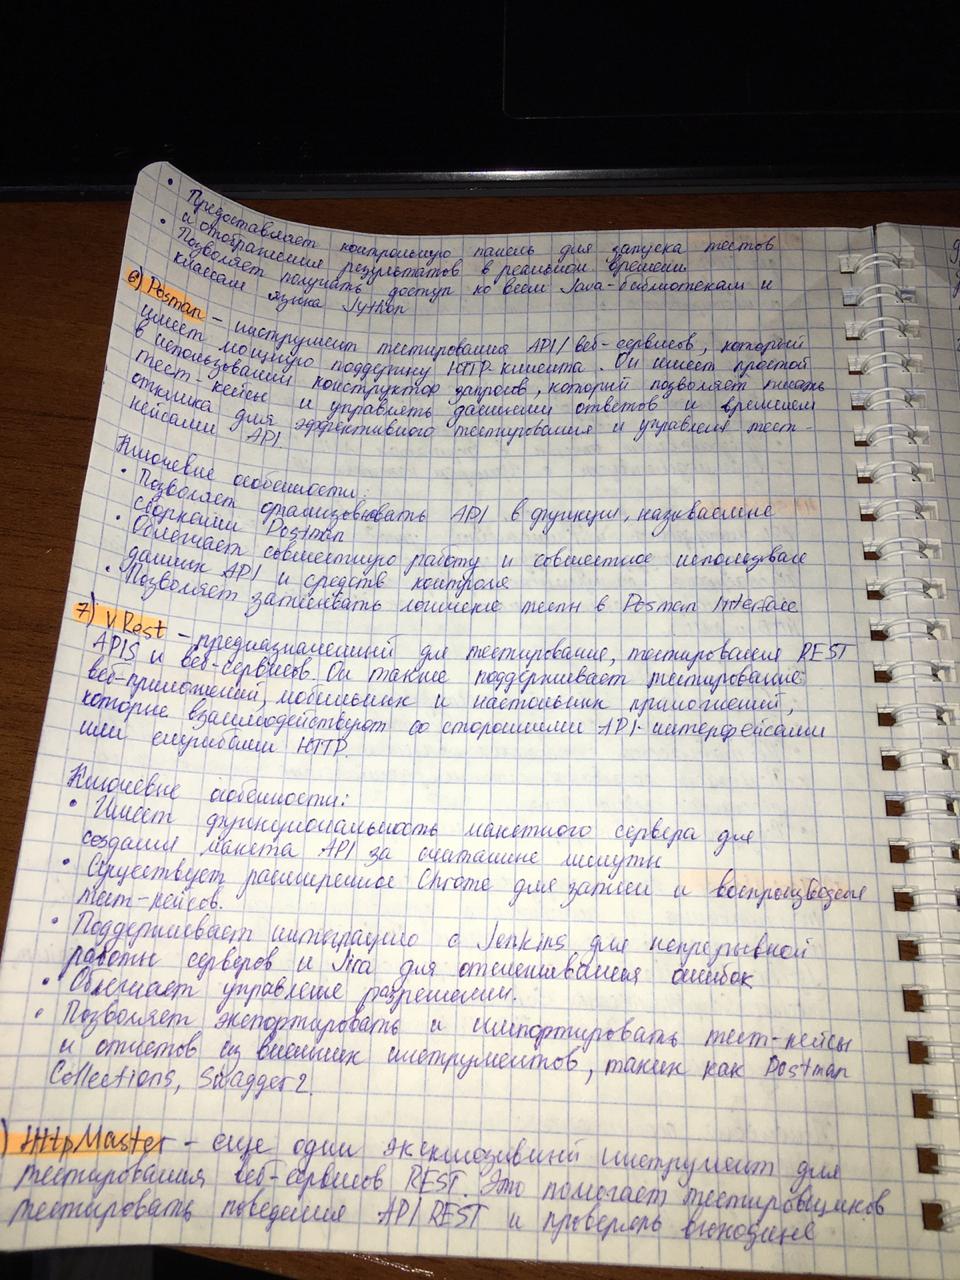 • Предоставляет контрольную панель для запуска тестов
и отображения результатов в реальном времени
• Позволяет получать доступ ко всем Java-библиотекам и
классам языка Jython
6) Posman - инструмент тестирования API/веб-сервисов, который
имеет мощную поддержку HTTP-клиента. Он имеет простой
в использовании конструктор запросов, который позволяет писать
тест-кейсы и управлять данными ответов и временем
отклика для эффективного тестирования и управления тест-
кейсами API
Ключевые особенности:
• Позволяет организовывать API в функции, называемые
сборками Postman
• Облегчает совместную работу и совместное использован
данных API и средств контроля
• Позволяет записывать логические тесты в Posman Interface
7) vRest - предназначенный для тестирование, тестирования REST
APIS и веб-сервисов. Он также поддерживает тестирование
веб-приложений, мобильных и настольных приложений,
которые взаимодействуют со сторонними API-интерфейсами
или службами HTTP.
Ключевые особенности:
• Имеет функциональность макетного сервера для
создания макета API за считанные минуты
• Существует расширение Chrome для записи и воспроизведен
тест-кейсов.
• Поддерживает интеграцию с Jenkins для непрерывной
работы серверов и Jira для отслеживания ошибок
• Облегчает управление разрешении.
• Позволяет экспортировать и импортировать тест-кейсы
и отчетов из внешних инструментов, таких как Postman
Collections, Swagger 2.
) HttpMaster - еще один эксклюзивный инструмент для
тестирования веб-сервисов REST. Это помогает тестировщиков
тестировать поведения API REST и проверять выходные